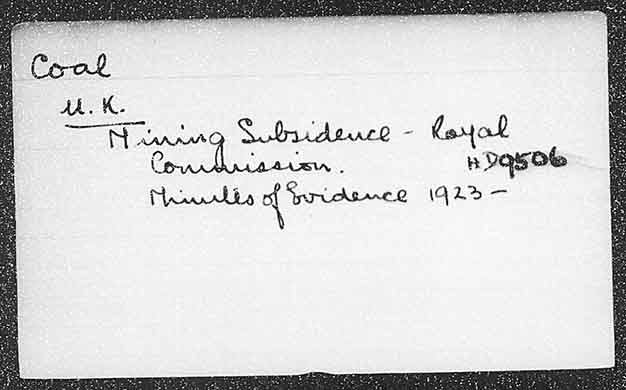 Coal
U.K.
Mining Subsidence - Royal
Commission. HD9506
Minutes of Evidence 1923 -